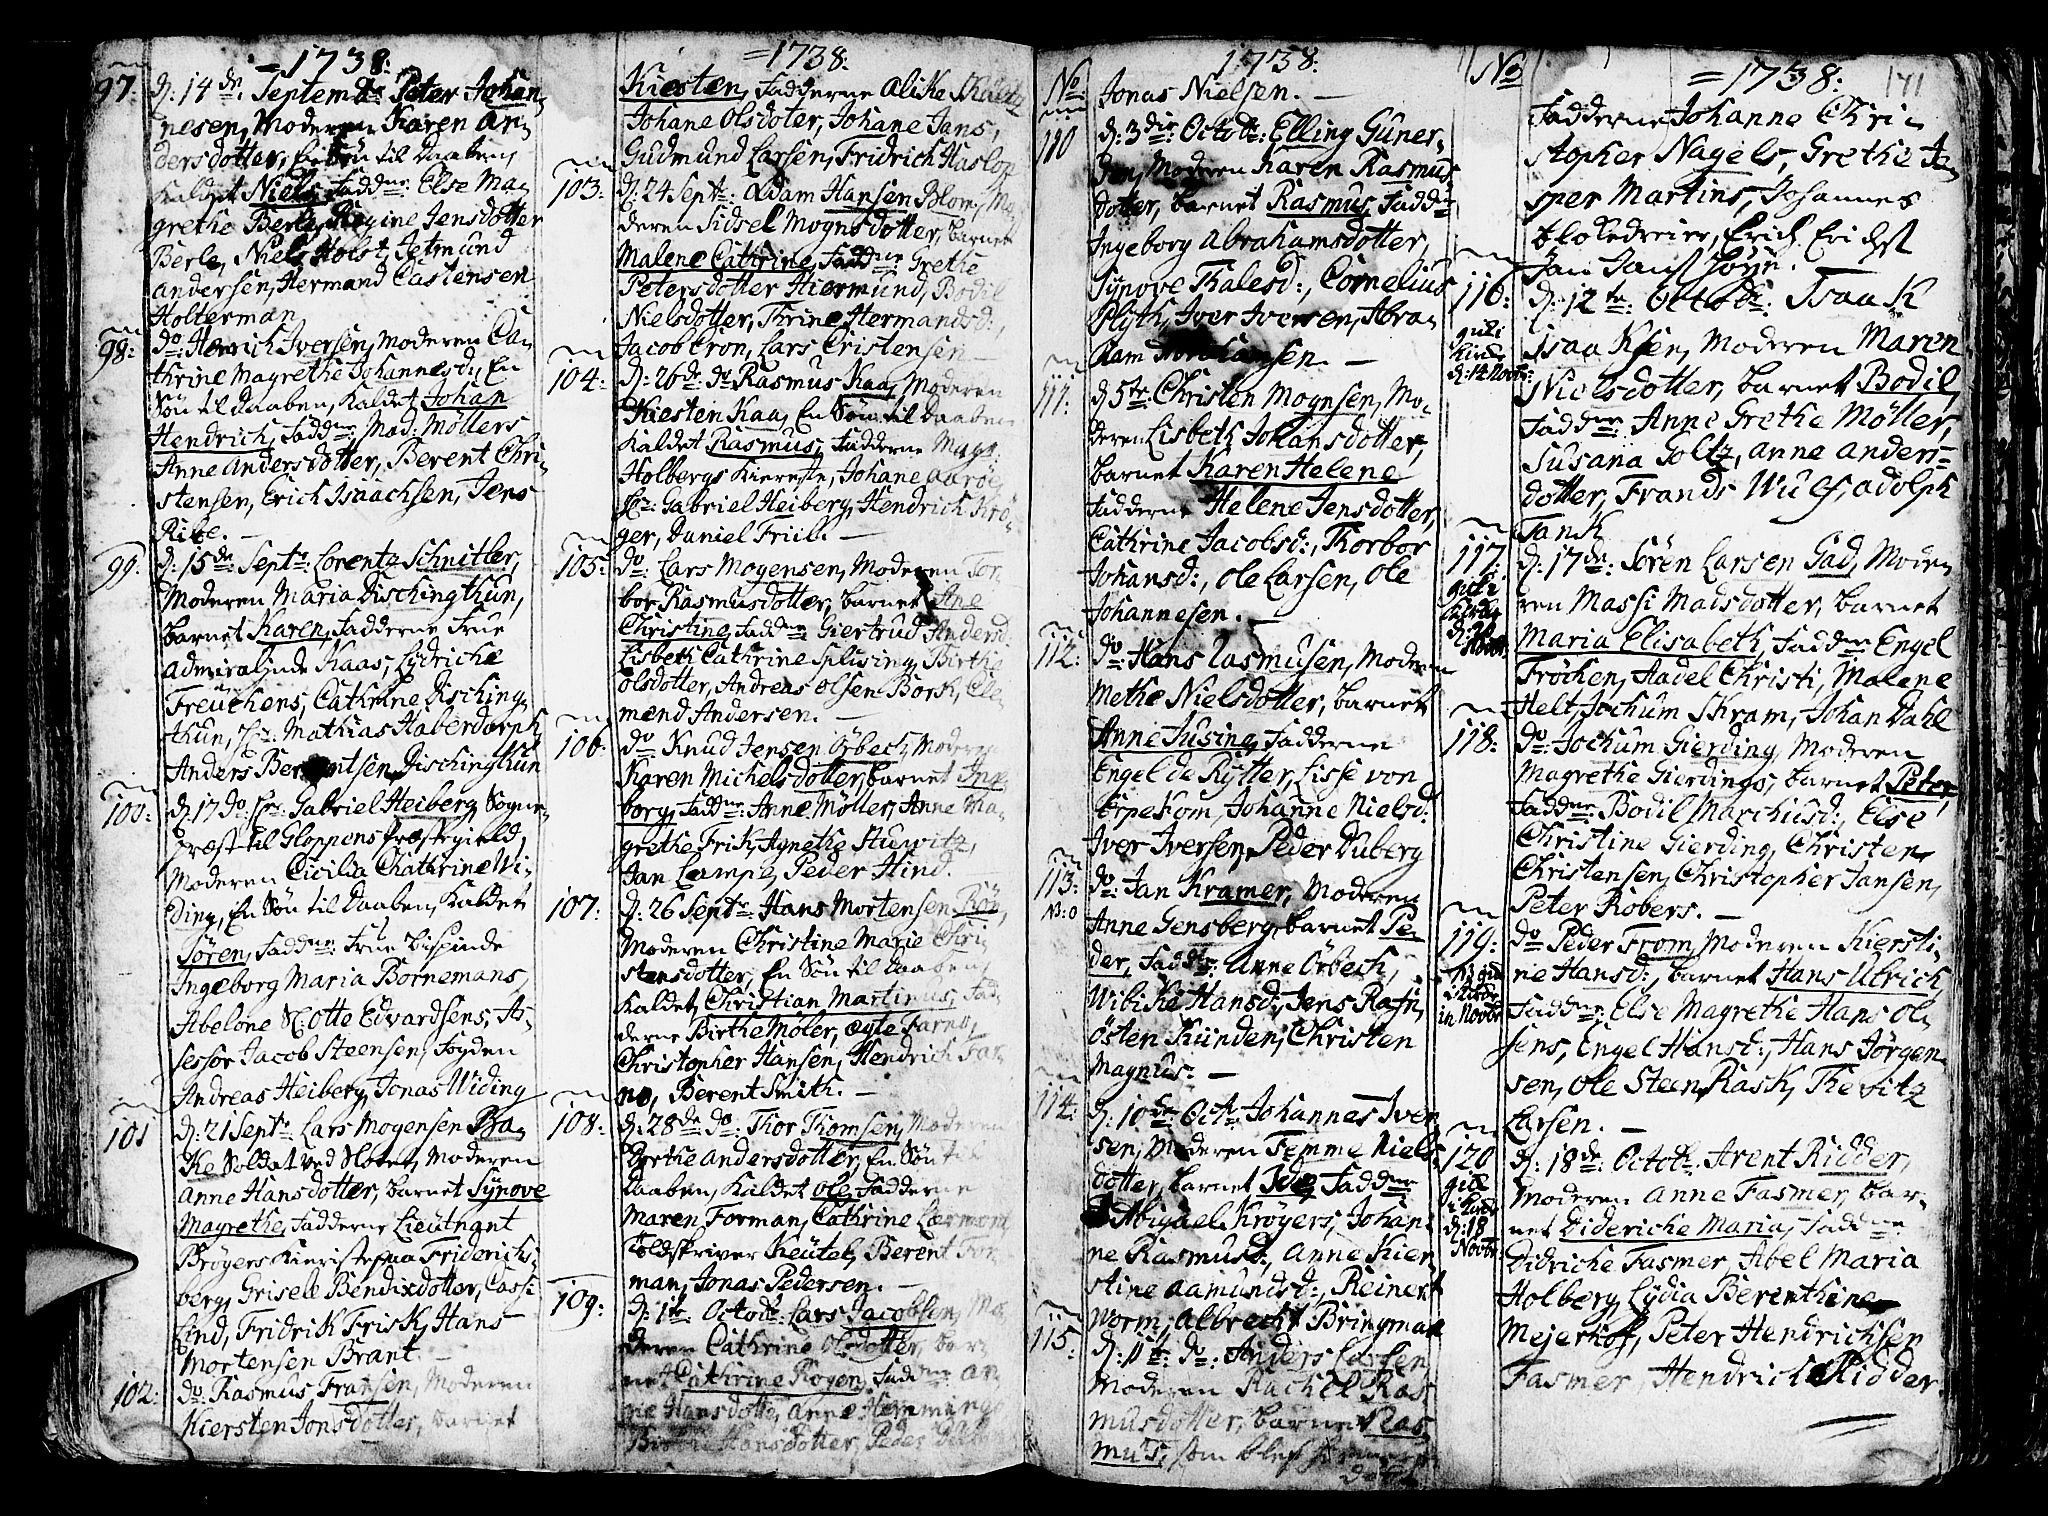 = 1738:
97. d: 14 de: Septembr Peter Johan-
nesen, Moderen Karen An-
dersdotter, En Søn til Daaben,
kaldet Niels, Fadd ne: Else Ma-
grethe Berle, Regine Jensdotter
Berle, Niels Holst, Jetmund
Andersen, Hermand Castensen
Holterman
98: do: Henrich Iversen, Moderen Ca-
thrine Magrethe Johannesd:, En
Søn til Daaben, Kaldet Johan
Hendrich, Fadd ne: Mad: Möllers
Anne Andersdotter, Berent Chri-
stensen, Erich Isaachsen, Jens
Ribe. —
99. d: 15 de Septr: Lorentz Schnitler,
Moderen Maria Dischingthun,
barnet Karen, Fadderne Frue
Admiralinde Kaas, Lydriche
Freuchens, Cathrine Disching-
thun, Hr: Mathias Haberdorph,
Anders Berentsen Dischingthun
100: d: 17 do Hr: Gabriel Heiberg Sogne-
præst til Gloppens Præstegield,
Moderen Cicilia Chathrine Wi-
ding, En Søn til Daaben, Kaldet
Sören, Fadd ne: Frue Bispinde
Ingeborg Maria Bornemans,
Abelone Sl: Otte Edvardsens, As-
sessor Jacob Steensen, Fogden
Andreas Heiberg, Jonas Widing
101 d: 21 Septr: Lars Mogensen Bra-
ke Soldat ved Slotet, Moderen
Anne Hansdotter, barnet Synove
Magrethe, Fadderne Lieutnant
Bröyers Kieriste paa Friderichs-
berg, Grisell Bendixdotter, Cassi
Lind, Fridrik Frisk, Hans
Mortensen Brant
102: do: Rasmus Fransen, Moderen
Kiersten Jonsdotter, barnet
= 1738:
Kiersten, Fadderne Alike
Johane Olsdoter, Johane Jans,
Gudmund Larsen, Fridrich Haslop
103: d: 24 Septr: Adam Hansen Blom, Mo-
deren Sidsel Mognsdotter, barnet
Malene Cathrine, Fadd ne: Grethe
Petersdotter Hiermund, Bodil
Nielsdotter, Thrine Hermandsd:,
Jacob Cron, Lars Cristensen —
104: d: 26 de do Rasmus Kaa, Moderen
Kiesten Kaa, En Søn til Daaben
Kaldet Rasmus, Fadderne Magr:
Holbergs Kiereste, Johane Aarøe,
Hr: Gabriel Heiberg, Hendrich Krö-
ger, Daniel Friil. —
105: do: Lars Mogensen, Moderen Tor-
bor Rasmusdotter, barnet Ane
Christine, Fadd ne Giertrud Andersd
Lisbeth Cathrine Splusing, Birthe
Olsdotter, Andreas Olsen Bork, Cle-
mend Andersen. —
106: do Knud Jensen Örbech, Moderen
Karen Michelsdotter, barnet Inge
borg, Fadd ne: Anne Möller, Anne Ma-
grethe Frik, Agnethe Sturvitz,
Jan Lampe, Peder Hind.
107: d: 26 Septr: Hans Mortensen Rön,
Moderen Christine Marie Chri-
stensdotter, En Søn til Daaben,
Kaldet Christian Martinus, Fad-
derne Birthe Möler, Ægte Farnö,
Christopher Hansen, Hendrich Far-
nø, Berent Smith. —
108: d: 28 de do: Thor Thomsen, Moderen
Dorthe Andersdotter, En Søn til
Daaben, Kaldet Ole, Fadderne
Maren Forman, Cathrine Lærmont
Toldskriver Keutel, Berent For-
man, Jonas Pedersen. —
109: d: 1te Octobr: Lars Jacobsen, Mo-
deren Cathrine Olsdotter, bar-
net Cathrine Rogen, Fadd ne An-
ne Hansdotter, Anne Hemmings
Hansdotter, Peder
1738:
No: Jonas Nielsen. —
110 d: 3die Octobr: Elling Guner-
sen, Moderen Karen Rasmus
dotter, barnet Rasmus, Fadd ne
Ingeborg Abrahamsdotter,
Synove Thalesd:, Cornelius
Plyth, Iver Iversen, Abra-
ham Abrahamsen. —
111: d 5te: Christen Mognsen, Mo-
deren Lisbeth Johansdotter,
barnet Karen Helene
Fadderne Helene Jensdotter,
Cathrine Jacobsd:, Thorbor
Johansd:, Ole Larsen, Ole
Johannesen.
112: do Hans Rasmusen, Moderen
Methe Nielsdotter, barnet
Anne Susing, Fadderne
Engel de Rytter, Lisse von
Erpekom, Johanne Nielsd:
Iver Iversen, Peder Duberg
113: do: Jan Kramer, Moderen
N:o Anne Gensberg, barnet Pe-
der, Fadd ne: Anne Örbech,
Wibike Hansd:, Jens Rafn,
Østen Künden, Christen
Magnus: —
114: d: 10 de Octr: Johannes Iver-
sen, Moderen Femme Niels-
dotter, barnet Ide, Fadd ne
Abigael Kröyers, Johan-
ne Rasmusd:, Anne Kier-
stine Aamundsd:, Reinert
Worm, Albrecht Bringman
115: d: 11te: do: Anders Larsen
Moderen Rachel Ras
musdotter, barnet Ras
mus, som blef
No = 1738: 171
Fadderne Johanne Chri-
stopher Nagels, Grethe Ja-
sper Martins, Johannes
blokedreier, Erich Erichst
Jan Janst Höye.
116: d: 12te: Octobr: Isaak
gul i
kirke
d: 14 Novbr:
Isaaksen, Moderen Maren
Nielsdotter, barnet Bodil,
Fadd ne: Anne Grethe Möller,
Susana Goltz, Anne Anders-
dotter, Frands Wulf, Adolph
Tank
117: d: 17 de: Sören Larsen Gad, Mode-
gul i
kirke
Novbr:
ren Massi Madsdotter, barnet
Maria Elisabeth, Fadd ne Engel
Fröchen, Aadel Christi, Malene
Helt, Jochum Skram, Johan Dahl
118: do: Jochum Gierding, Moderen
Magrethe Gierdings, barnet Peter,
Fadd ne: Bodil Marchusd:, Else
Christine Gierding, Christen
Christensen, Christopher Jansen,
Peter Robers. —
119: do Peder From, Moderen Kiersti-
in Novbr
ne Hansd:, barnet Hans Ulrich
Fadd ne: Else Magrethe Hans Ol-
sens, Engel Hansd:, Hans Jörgen-
sen, Ole Steen Rask, Thewitz
Larsen. —
120 d: 18 de: Octobr: Arent Ridder,
gul
i kirke
d: 18
Novbr:
Moderen Anne Fasmer, bar-
net Dideriche Maria, Fadd ne
Didriche Fasmer, Abel Maria
Holberg, Lydia Berenthine
Mejerhof, Peter Hendrichsen
Fasmer, Hendrich Ridder.